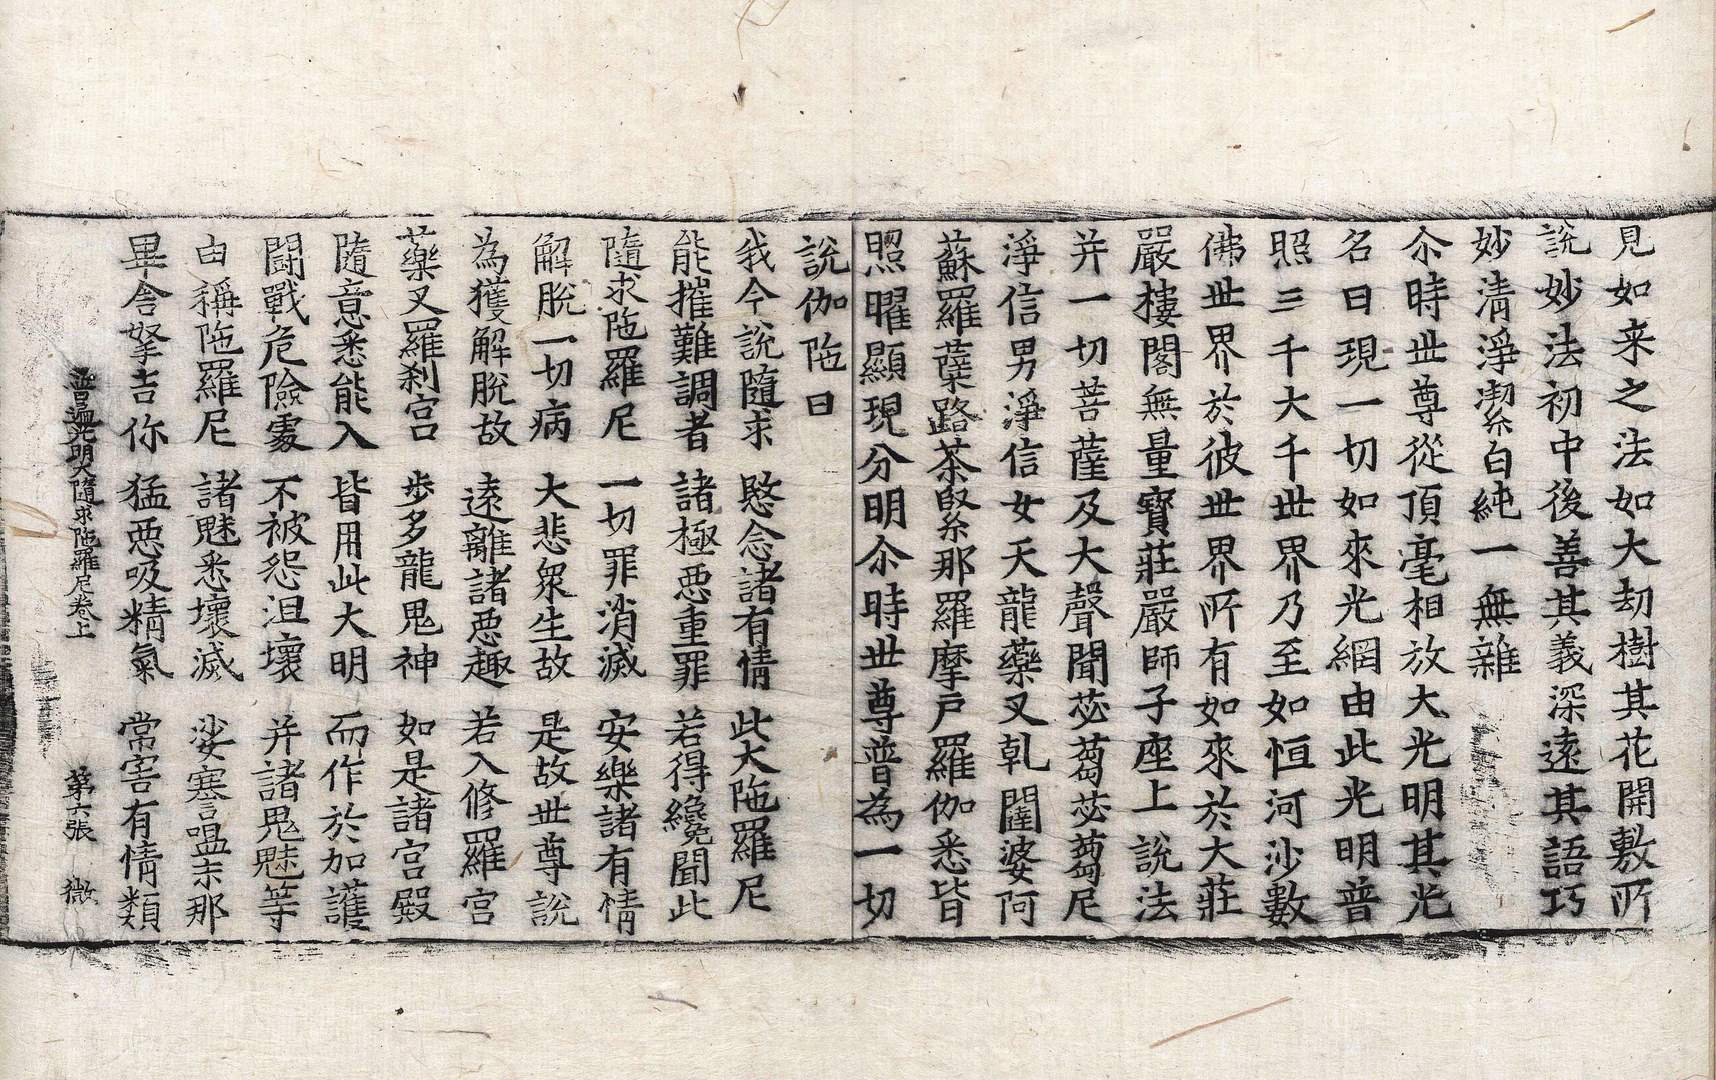 見如来之法如大劫樹其花開敷所
說妙法初中後善其義深遠其語巧
妙清淨潔白純一無雜
尒時世尊從頂毫相放大光明其光
名曰現一切如來光網由此光明普
照三千大千世界乃至如恒河沙數
佛世界於彼世界所有如來於大莊
嚴樓閣無量寶莊嚴師子座上說法
并一切菩薩及大聲聞苾蒭苾蒭尼
淨信男淨信女天龍藥叉乹闥婆阿
蘇羅蘖路茶緊那羅摩戶羅伽悉皆
照曜顯現分明尒時世尊普為一切
說伽陁曰
我今說隨求 愍念諸有情 此大陁羅尼
能摧難調者 諸極惡重罪 若得纔聞此
隨求陁羅尼 一切罪消滅 安樂諸有情
解脫一切病 大悲衆生故 是故世尊說
為獲解脫故 遠離諸惡趣 若入修羅宮
藥叉羅剎宮 步多龍鬼神 如是諸宮殿
隨意悉能入 皆用此大明 而作於加護
鬪戰危險處 不被怨沮壞 并諸鬼魅等
由稱陁羅尼 諸魅悉壞滅 娑塞嗢末那
畢舍拏吉你 猛惡吸精氣 常害有情類
普遍光明大隨求陁羅尼卷上 第六張 微